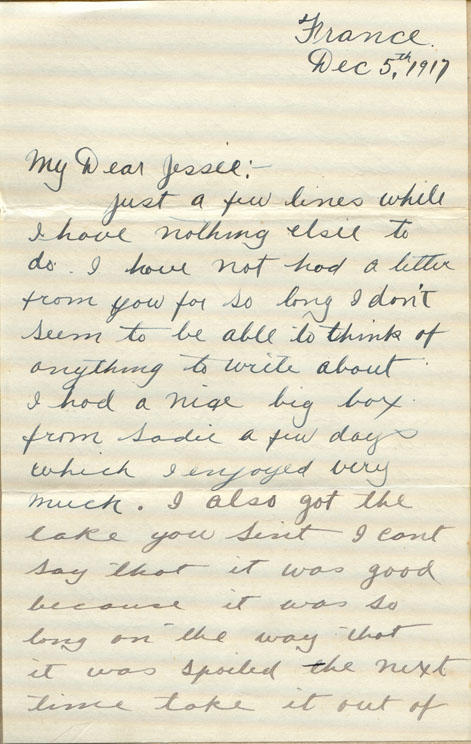 France.
Dec 5,th 1917
My Dear Jessie:-
Just a few lines while
I have nothing elsie to
do. I have not had a letter
from you for so long I don't
seem to be able to think of
anything to write about
I had a nice big box
from Sadie a few days
which I enjoyed very
much. I also got the
cake you sent I cant
say that it was good
because it was so
long on the way that
it was spoiled the next
time take it out of